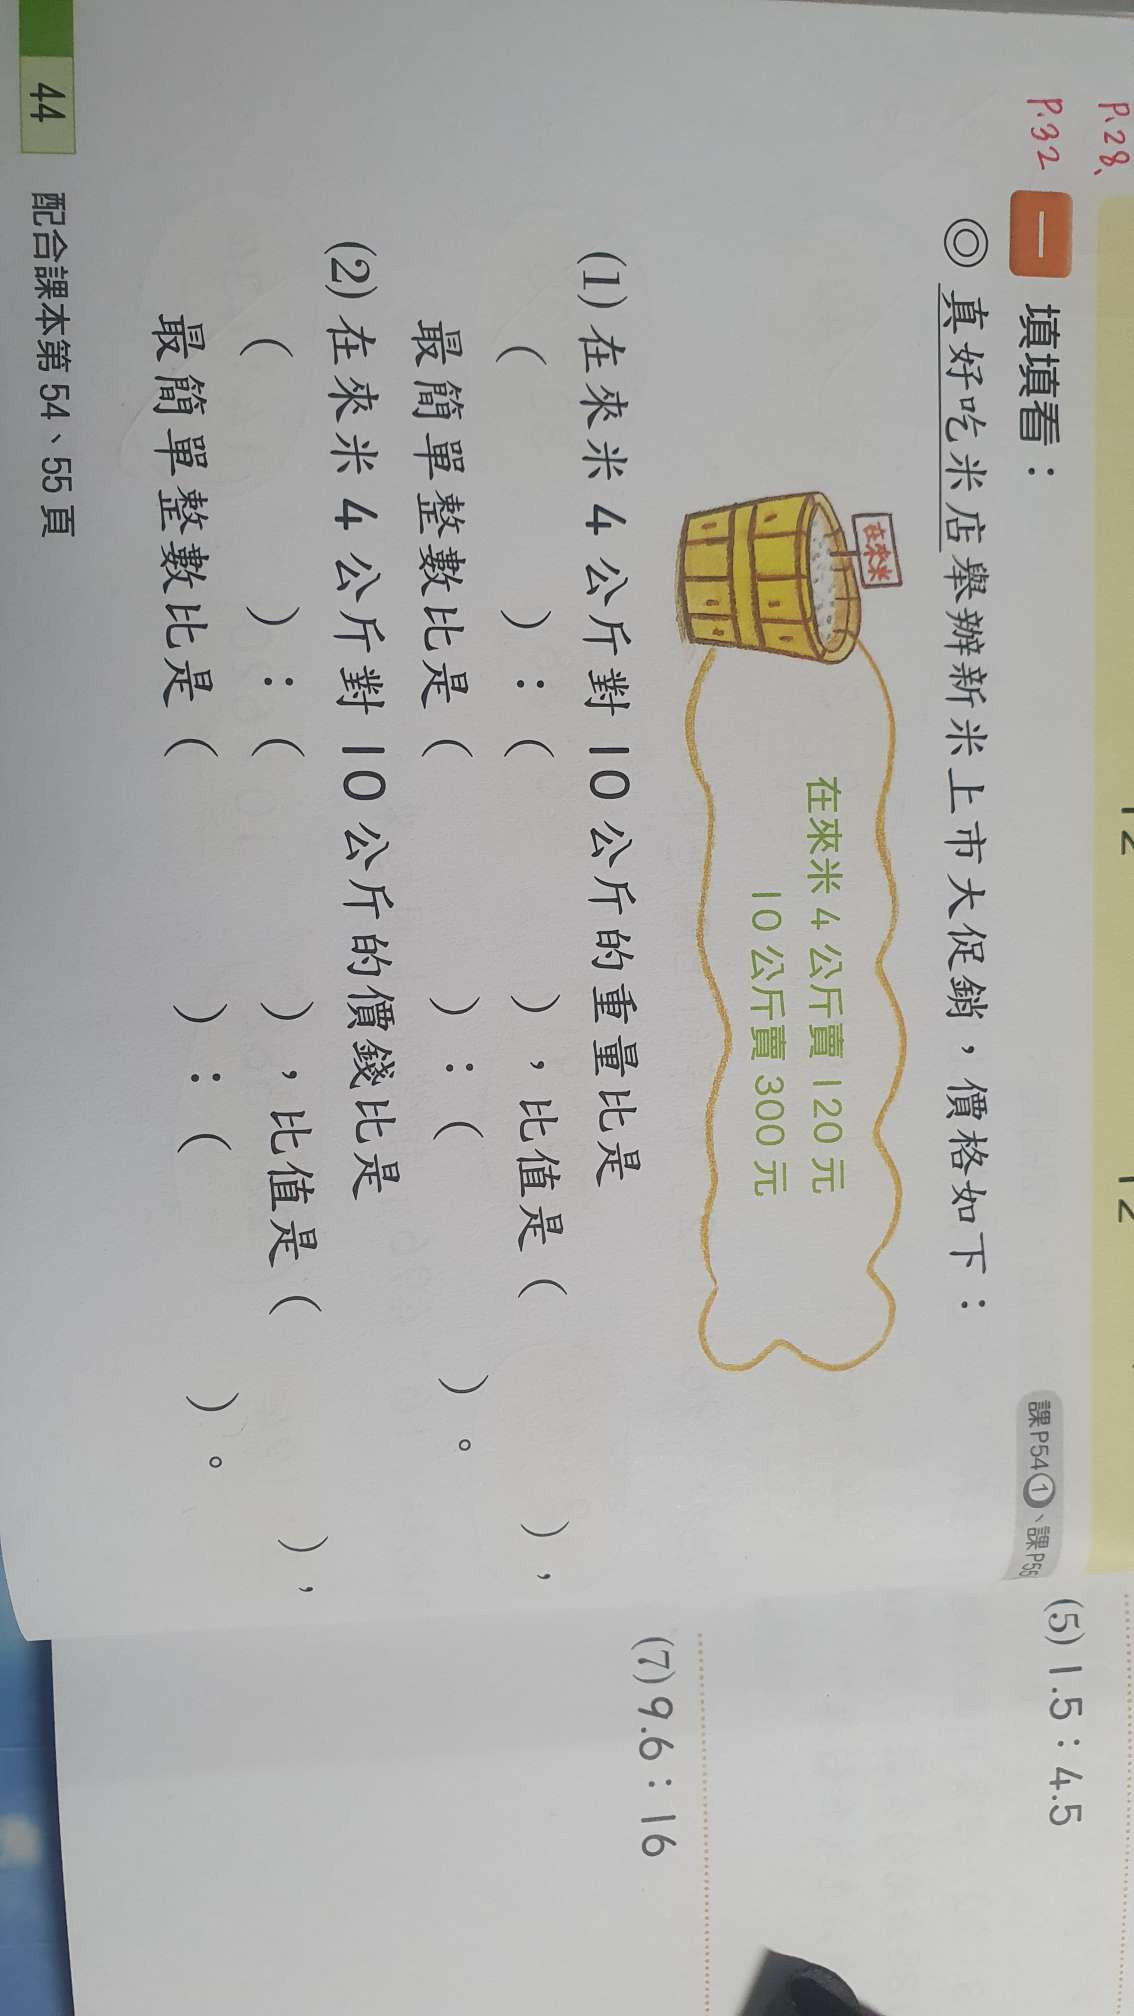 P.28、
P.32
一 填填看：
課P54①、課P55
◎真好吃米店舉辦新米上市大促銷，價格如下：
在來米
在來米 4 公斤賣 120 元
10 公斤賣 300 元
(1)在來米 4 公斤對 10 公斤的重量比是
( )：( )，比值是( )，
最簡單整數比是( )：( )。
(2)在來米 4 公斤對 10 公斤的價錢比是
( )：( )，比值是( )，
最簡單整數比是( )：( )。
44 配合課本第 54、55 頁
12
12
(5) 1.5：4.5
(7) 9.6：16